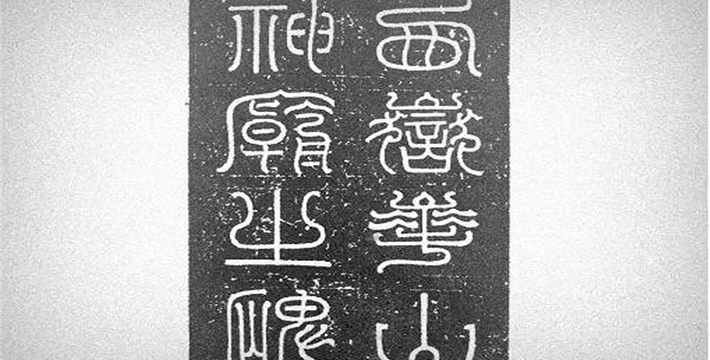 西嶽華山
神廟之碑